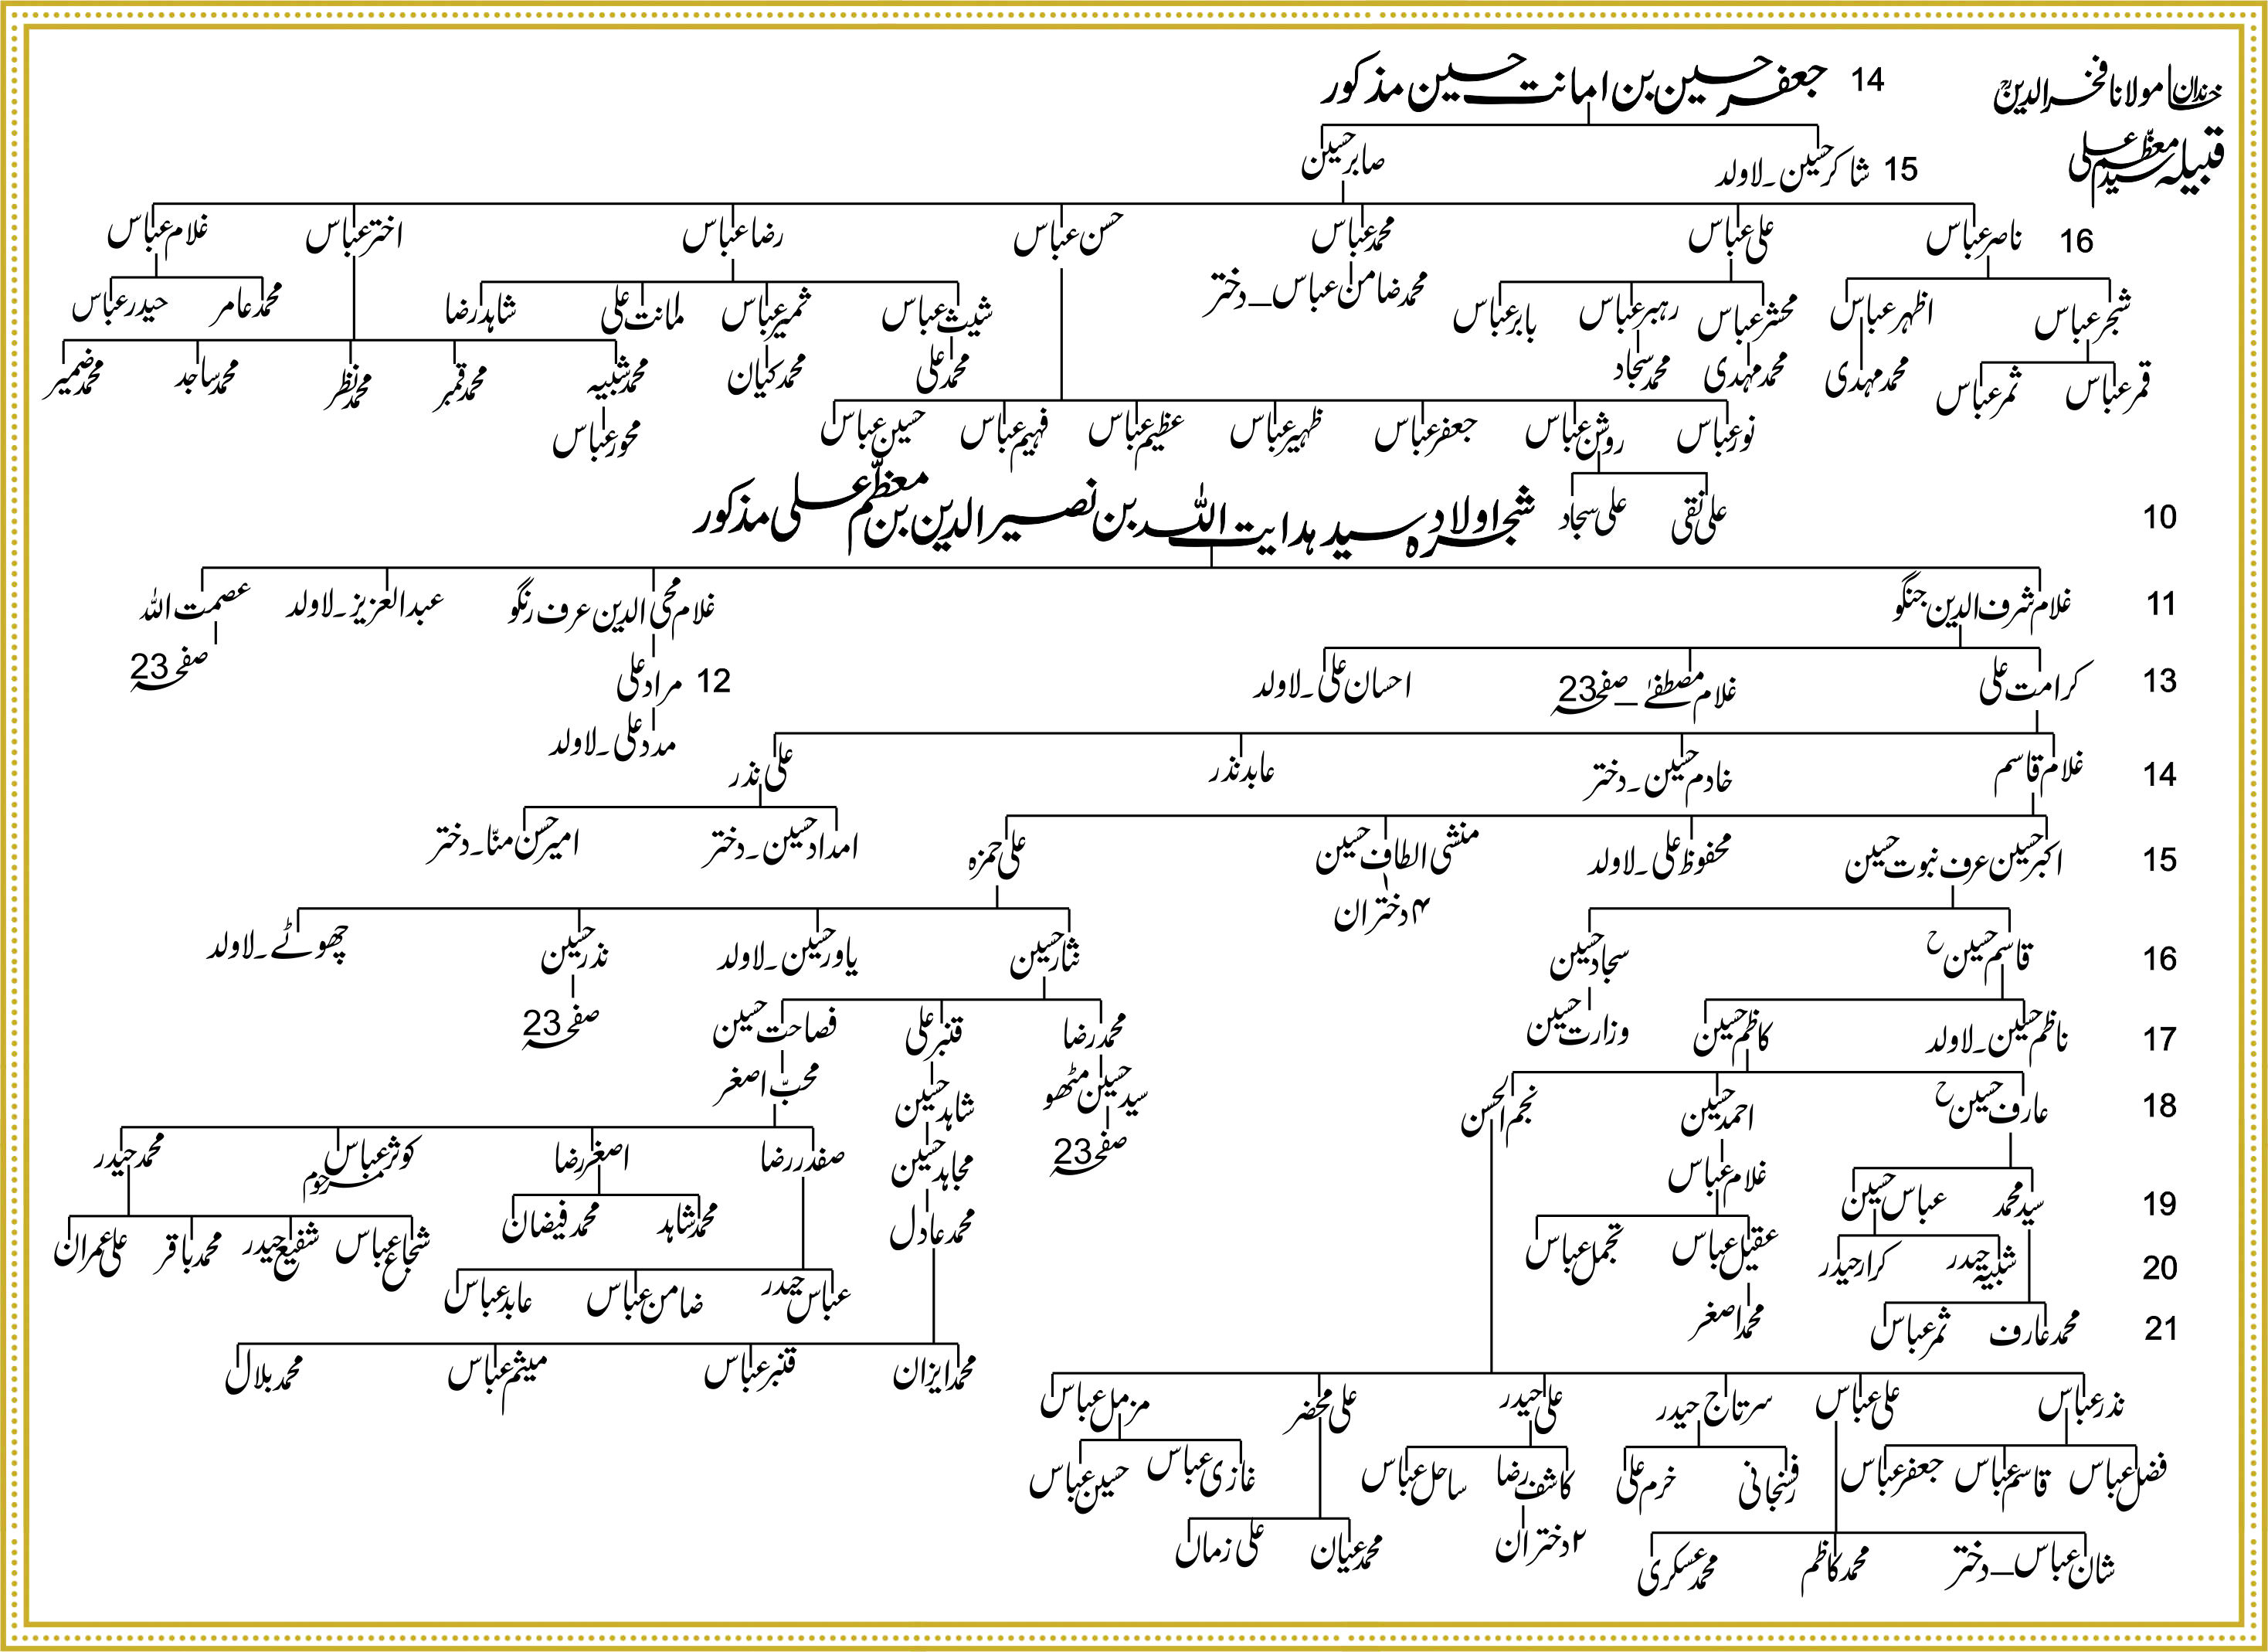 خاندان مولانا فخر الدینؒ
جعفر حسین بن امانت حسین مذکور 14
قبیلہ سید معظّم علی
15 شاکر حسین۔لاولد صابر حسین
16 ناصر عباس علی عباس محمد عباس حسن عباس رضا عباس اختر عباس غلام عباس
شجر عباس اظہر عباس محشر عباس رہبر عباس بابر عباس محمد ضامن عباس_دختر شیث عباس ثمیر عباس امانت علی شاہد رضا محمد عامر حیدر عباس
قمر عباس ثمر عباس محمد مہدی محمد مہدی محمد سجاد محمد علی محمد کیان محمد شبیہ محمد قمبر محمد نظر محمد ساجد محمد ضمیر
نور عباس روشن عباس جعفر عباس ظہیر عباس عظیم عباس فہیم عباس حسین عباس محور عباس
علی نقی علی سجاد
10 شجرہ اولاد سید ہدایت اللہ بن نصیر الدین بن معظّم علی مذکور
11 غلام شرف الدین جنگو غلام محی الدین عرف رنگو عبدالعزیز۔لاولد عصمت اللہ
13 کرامت علی غلام مصطفیٰ_صفحہ 23 احسان علی۔لاولد 12 مراد علی صفحہ 23
مدد علی۔لاولد
14 غلام قاسم خادم حسین۔دختر عابد نذر علی نذر
15 اکبر حسین عرف نبوت حسین محفوظ علی۔لاولد منشی الطاف حسین علی حمزہ امداد حسین۔دختر امیر حسن منّا۔دختر
۴ دختران
16 قاسم حسین ح سجاد حسین نثار حسین یاور حسین۔لاولد نذر حسین چھوٹے۔لاولد
17 ناظم حسین۔لاولد کاظم حسین وزارت حسین محمد رضا قنبر علی فصاحت حسین صفحہ 23
18 عارف حسین ح احمد حسین نجم الحسن سید حسین مٹھو شاہد حسین محبّ اصغر
صفحہ 23 مجاہد حسین صفدر رضا اصغر رضا کوثر عباس مرحوم محمد حیدر
غلام عباس
19 سید محمد عباس حسین محمد عادل محمد شاہد محمد فیضان
عقیل عباس تجمل عباس شجاع عباس شفیع حیدر محمد باقر علی عمران
20 شبیہ حیدر کرار حیدر عباس حیدر ضامن عباس عابد عباس
21 محمد عارف ثمر عباس محمد اصغر
محمد ایزان قنبر عباس میثم عباس محمد بلال
نذر عباس علی عباس سرتاج حیدر علی حیدر علی محضر مزمل عباس
فضل عباس قاسم عباس جعفر عباس خرم علی کاشف رضا ساحل عباس غازی عباس حسین عباس
شان عباس_دختر محمد کاظم محمد عسکری ۲ دختران محمد عیان علی زمان